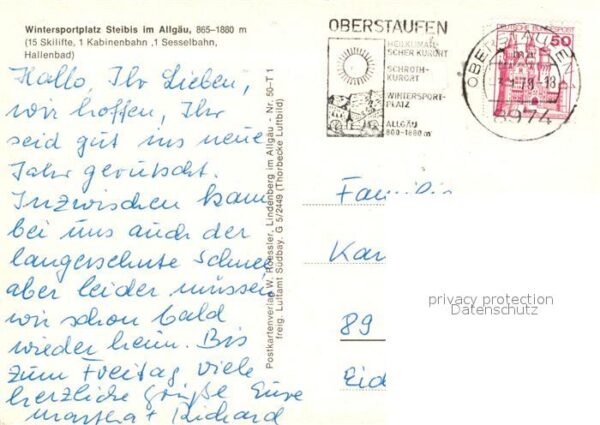 Wintersportplatz Steibis im Allgäu, 865-1880 m
(15 Skilifte, 1 Kabinenbahn ,1 Sesselbahn,
Hallenbad)
Hallo, Ihr Lieben,
wir hoffen, Ihr
seid gut ins neue
Jahr gerutscht.
Inzwischen kam
bei uns auch der
langersehnte Schnee
aber leider müssen
wir schon bald
wieder heim. Bis
zum Freitag viele
herzliche Grüße Eure
Martha + Richard
Postkartenverlag W. Roessler, Lindenberg im Allgäu - Nr. 50-T 1
freig. Luftamt Südbay. G 5/2449 (Thorbecke Luftbild)
OBERSTAUFEN
HEILKLIMATI-
SCHER KURORT
SCHROTH-
KURORT
WINTERSPORT-
PLATZ
ALLGÄU
800-1880 m
DEUTSCHE BUNDESPOST
50
OBERSTAUFEN
8974
Kar
89
privacy protection
Datenschutz